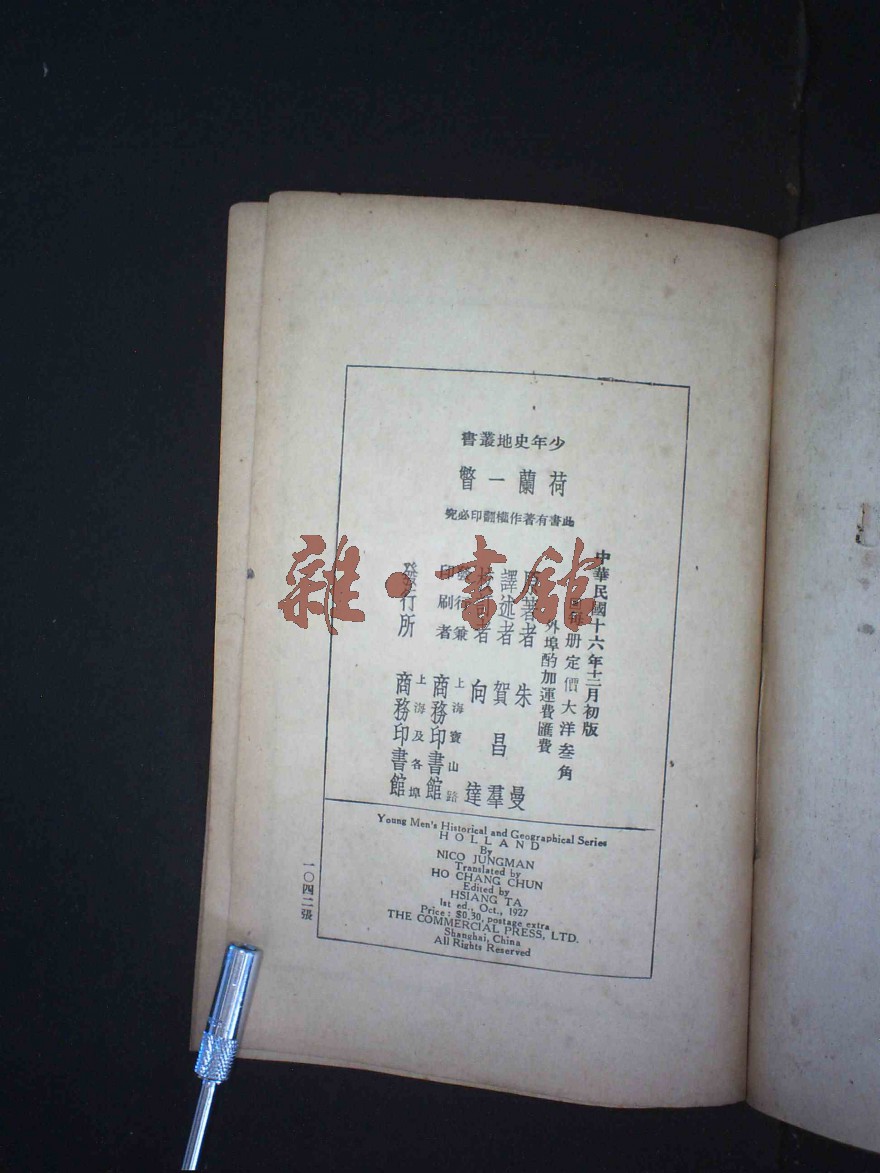 少年史地叢書
荷蘭一瞥
此書有著作權翻印必究
中華民國十六年十二月初版
回每册定價大洋叁角
外埠酌加運費匯費
原著者 朱曼
譯述者 賀昌羣
校訂者 向達
發行兼印刷者 上海寶山路 商務印書館
發行所 上海及各埠 商務印書館
Young Men's Historical and Geographical Series
HOLLAND
By
NICO JUNGMAN
Translated by
HO CHANG CHUN
Edited by
HSIANG TA
1st ed., Oct., 1927
Price: $0.30, postage extra
THE COMMERCIAL PRESS, LTD.
Shanghai, China
All Rights Reserved
一〇四二張
雜·書館